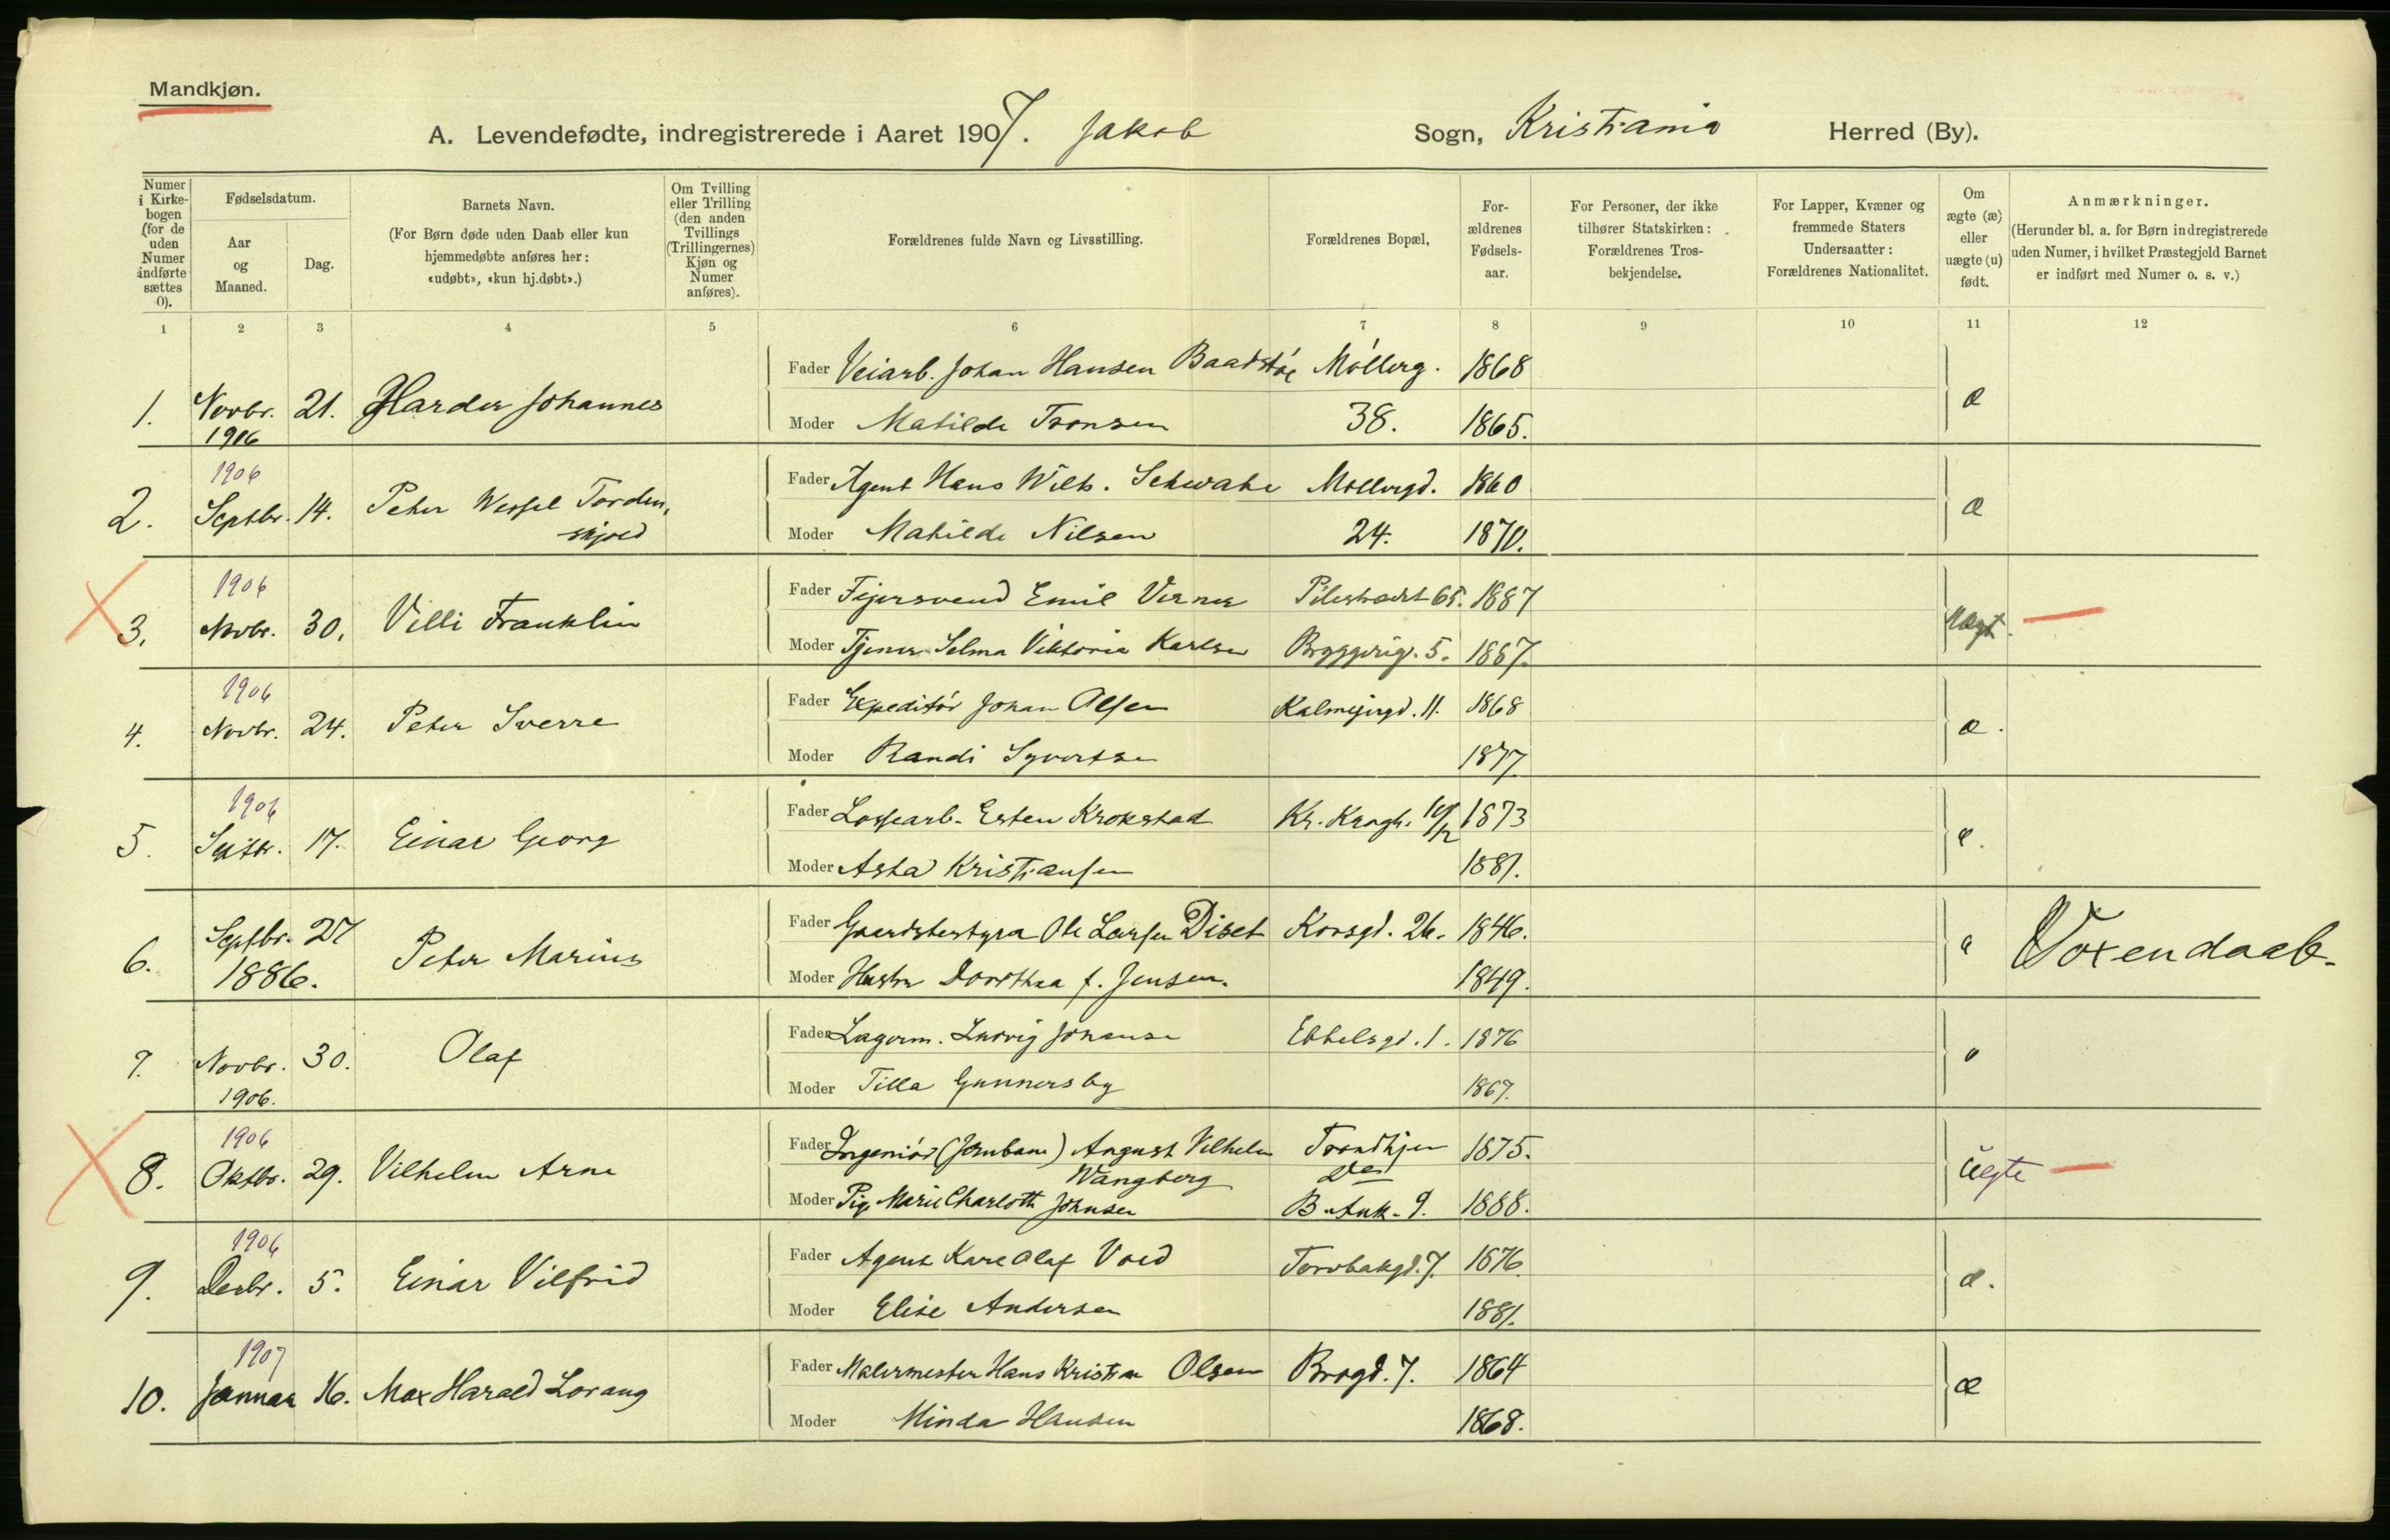 Mandkjøn.
A. Levendefødte, indregistrerede i Aaret 1907. Jakob Sogn, Kristiania Herred (By).
Numer i Kirke-bogen (for de uden Numer indførte sættes 0).
Fødselsdatum.
Aar og Maaned.
Dag.
Barnets Navn.
(For Børn døde uden Daab eller kun hjemmedøbte anføres her: «udøbt», «kun hj.døbt».)
Om Tvilling eller Trilling (den anden Tvillings (Trillingernes) Kjøn og Numer anføres).
Forældrenes fulde Navn og Livsstilling.
Forældrenes Bopæl,
For-ældrenes Fødsels-aar.
For Personer, der ikke tilhører Statskirken: Forældrenes Tros-bekjendelse.
For Lapper, Kvæner og fremmede Staters Undersaatter: Forældrenes Nationalitet.
Om ægte (æ) eller uægte (u) født.
Anmærkninger.
(Herunder bl. a. for Børn indregistrerede uden Numer, i hvilket Præstegjeld Barnet er indført med Numer o. s. v.)
1 2 3 4 5 6 7 8 9 10 11 12
Fader Veiarb. Johan Hansen Baadstøe Møllerg. 1868
1. Novbr. 21. Harder Johannes æ
1906
Moder Matilde Tronsen 38. 1865.
1906
Fader Agent Hans Wilh. Schwabe Møllergd. 1860
2. Septbr. 14. Peter Wessel Torden-
skjold æ
Moder Mathilde Nilsen 24. 1870.
1906
Fader Fejersvend Emil Verner Pilestrædet 65. 1887
3. Novbr. 30. Villi Franklin uægt.
Moder Tjener Selma Viktoria Karlsen Bryggerig. 5. 1887.
1906
Fader Expeditør Johan Olsen Kalmejergd. 11. 1868
4. Novbr. 24. Peter Sverre æ.
Moder Randi Syvertsen 1877
1906
Fader Lossearb. Esten Krokstad Kr. Kroghs 10/12 1873
5. Septbr. 17. Einar Georg æ.
Moder Asta Kristiansen 1881.
Fader Gaardsbestyrer Ole Larsen Diset Korsgd. 26. 1846.
6. Septbr. 27 Peter Marius æ Voxendaab.
1886.
Moder Hustru Dorthea f. Jensen. 1849.
Fader Lagerm. Ludvig Johansen Ebbelsgd. 1. 1876
7. Novbr. 30. Olaf æ
1906.
Moder Tilla Gunnersby 1867.
1906
Fader Ingeniør (Jernbane) August Vilhelm Trondhjem 1875.
Wangberg
8. Oktbr. 29. Vilhelm Arne uegte
Moder Pige Marie Charlotte Johnsen B. Ank. 9. 1888.
1906
Fader Agent Karl Olaf Vold Torvbakgd. 7. 1876.
9. Decbr. 5. Einar Vilfrid æ.
Moder Elise Andersen 1881.
1907
Fader Malermester Hans Kristian Olsen Brogd. 7. 1864
10. Januar 16. Max Harald Lorang æ
Moder Minda Hansen 1868.